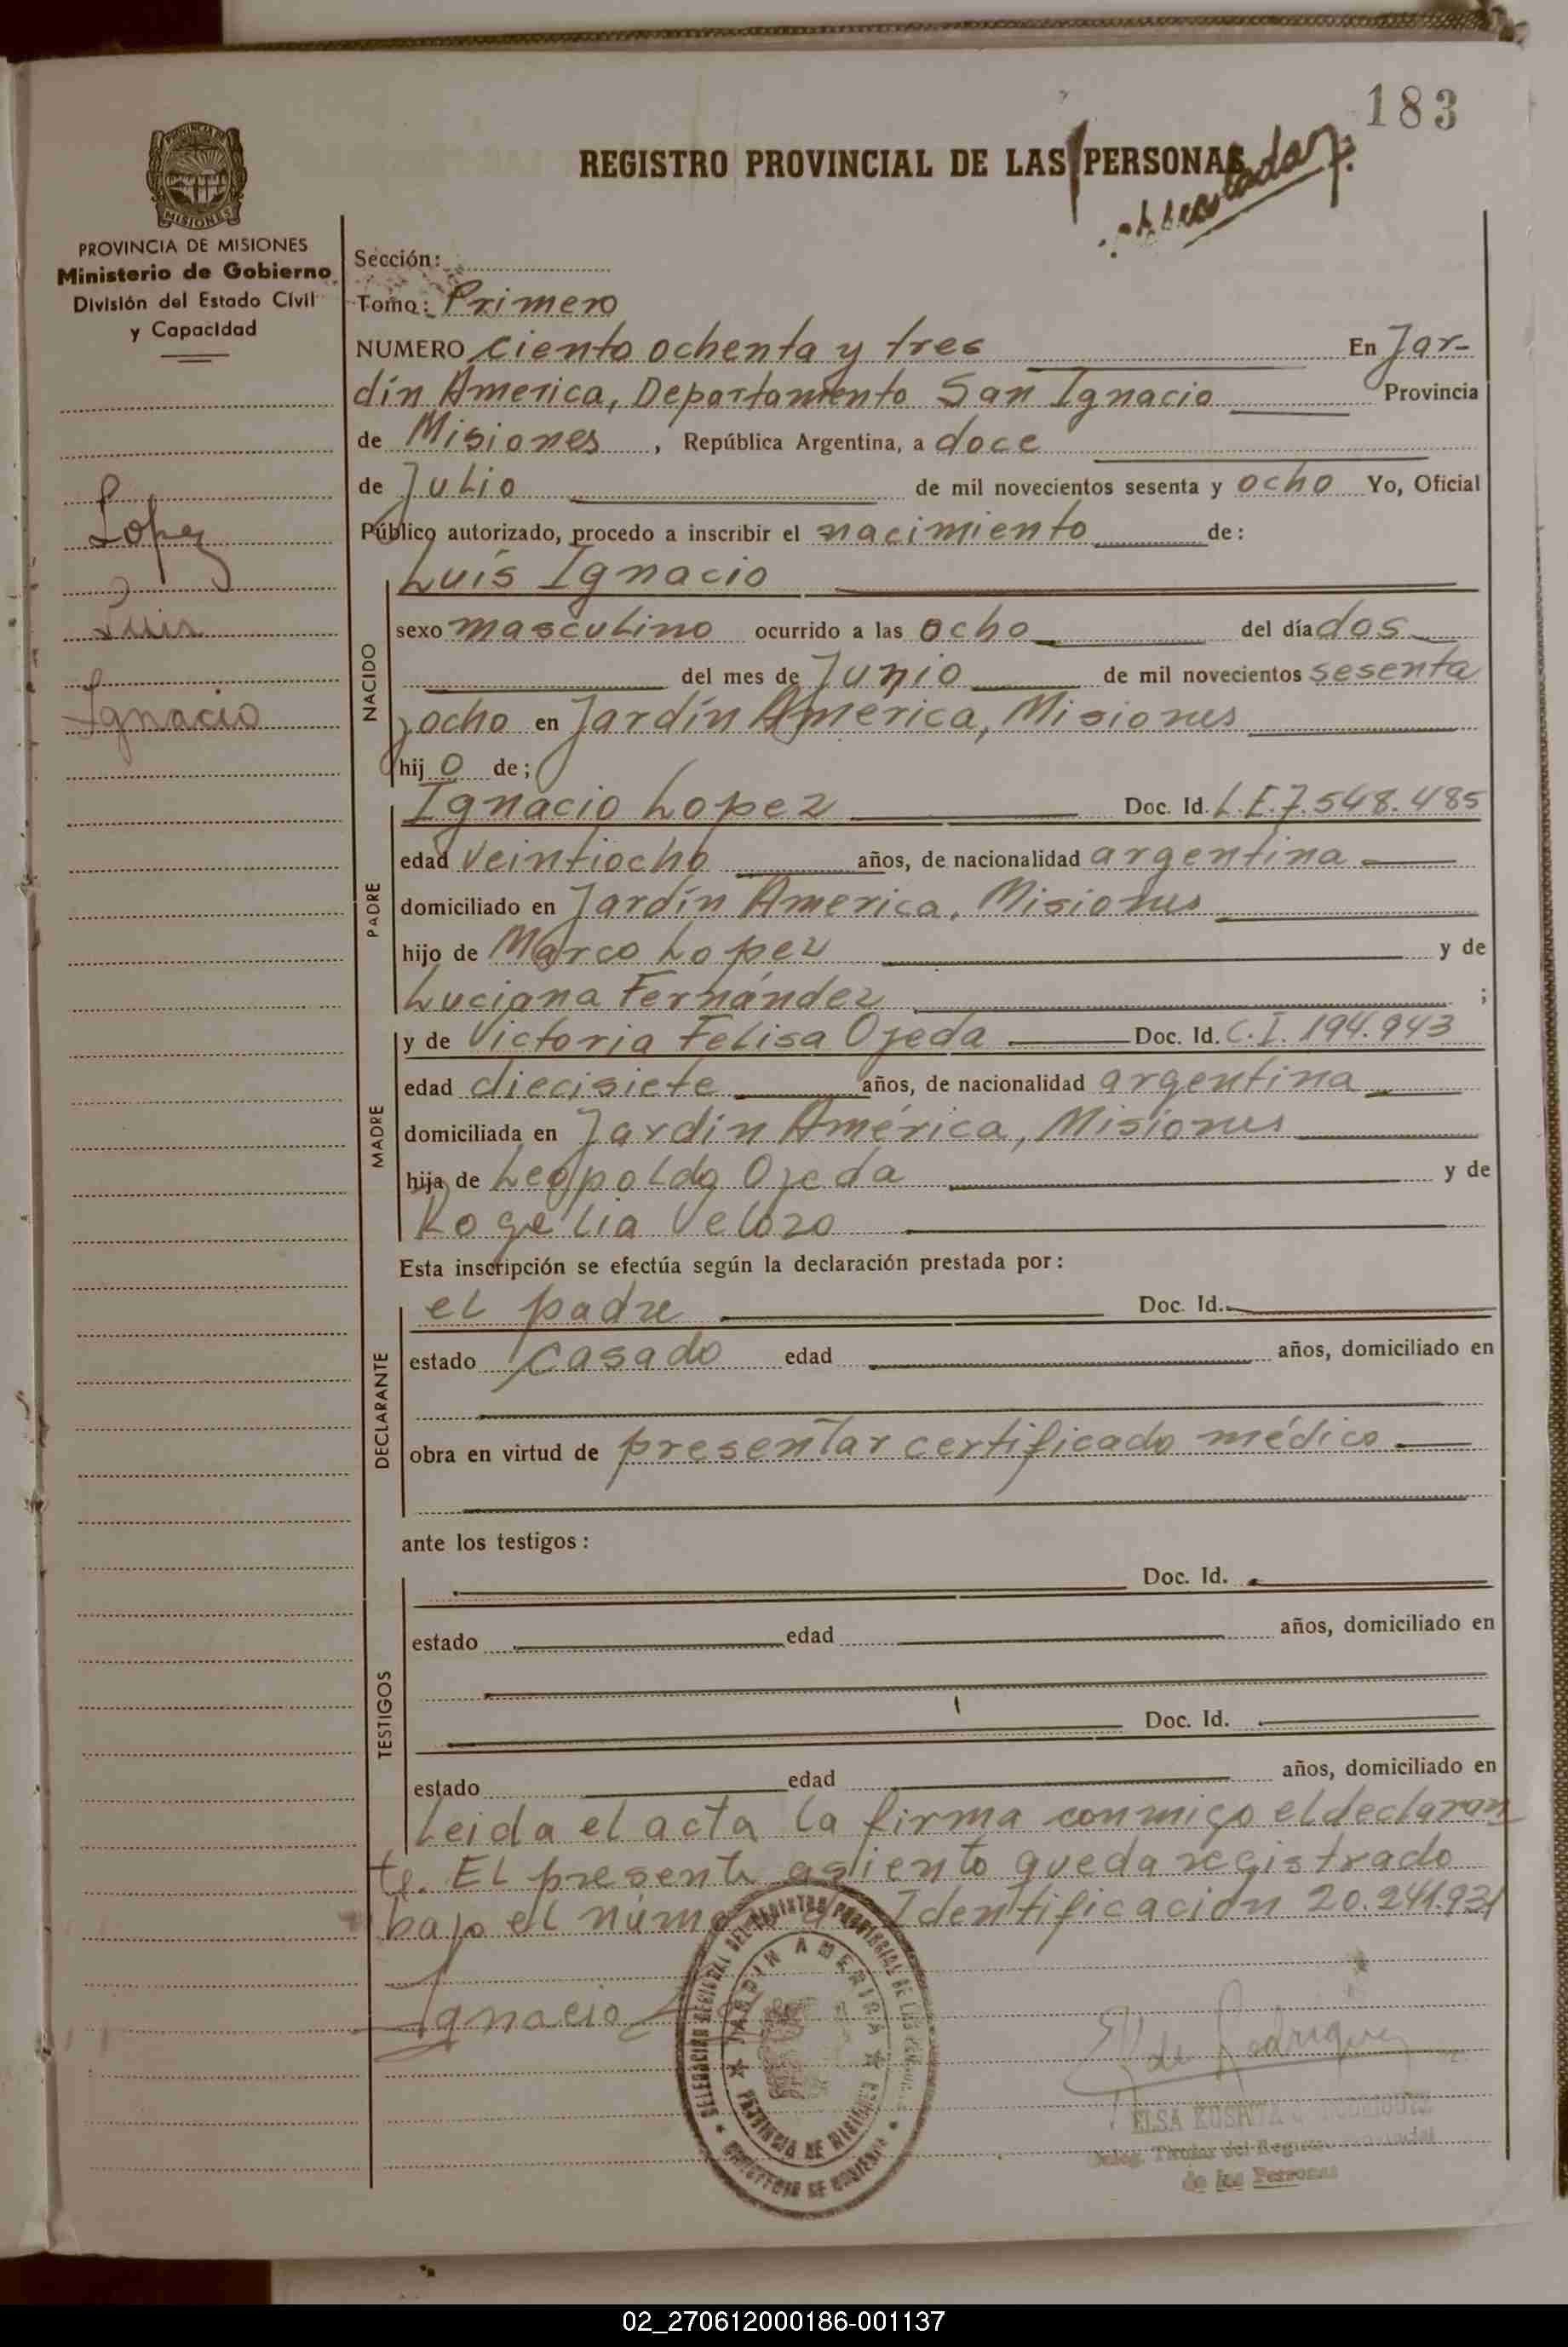 183
REGISTRO PROVINCIAL DE LAS PERSONAS
PROVINCIA DE MISIONES
Ministerio de Gobierno
División del Estado Civil
y Capacidad
Lopez
Luis
Ignacio
Sección:
Tomo: Primero
NUMERO ciento ochenta y tres En Jar-
dín America, Departamento San Ignacio Provincia
de Misiones, República Argentina, a doce
de Julio de mil novecientos sesenta y ocho Yo, Oficial
Público autorizado, procedo a inscribir el nacimiento de:
NACIDO
Luis Ignacio
sexo masculino ocurrido a las ocho del día dos
del mes de Junio de mil novecientos sesenta
y ocho en Jardín America, Misiones
hij o de;
PADRE
Ignacio Lopez Doc. Id. L.E.7.548.485
edad veintiocho años, de nacionalidad argentina
domiciliado en Jardín America, Misiones
hijo de Marco Lopez y de
Luciana Fernández ;
MADRE
y de Victoria Felisa Ojeda Doc. Id. C.I. 194.943
edad diecisiete años, de nacionalidad argentina
domiciliada en Jardín América, Misiones
hija de Leopoldo Ojeda y de
Rogelia Velozo
Esta inscripción se efectúa según la declaración prestada por:
DECLARANTE
el padre Doc. Id.
estado casado edad años, domiciliado en
obra en virtud de presentar certificado médico
ante los testigos:
TESTIGOS
Doc. Id.
estado edad años, domiciliado en
Doc. Id.
estado edad años, domiciliado en
Leida el acta la firma conmigo el declaran
te. El presente asiento queda registrado
bajo el número de Identificación 20.241.931
Ignacio
JARDIN AMERICA
PROVINCIA DE MISIONES
E R de Rodriguez
ELSA ROSITA RODRIGUEZ
Deleg. Titular del Registro Provincial
de las Personas
02_270612000186-001137